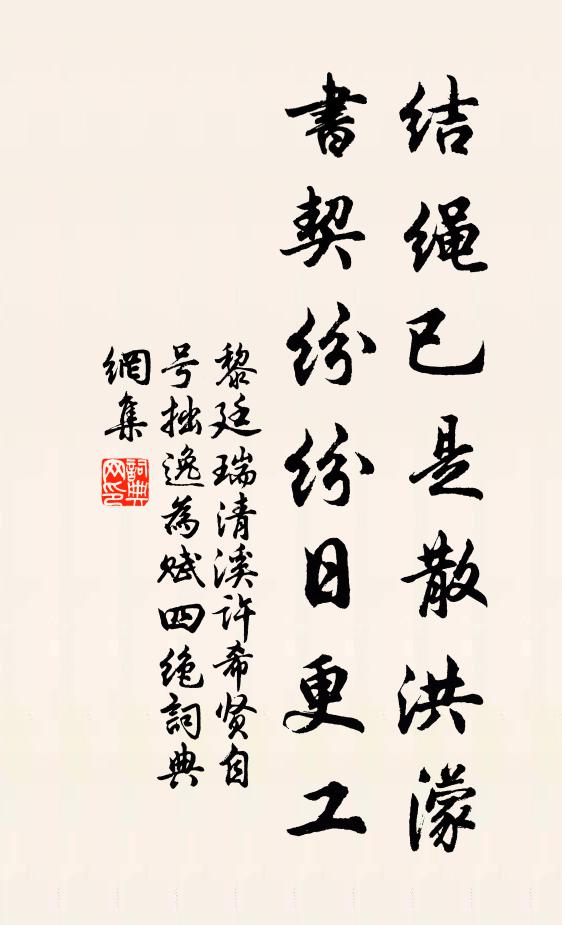 结绳已是散洪濛
書契纷纷日更工
黎廷瑞清溪许希贤自
号拙逸為赋四绝詞典
網集
詞典网印